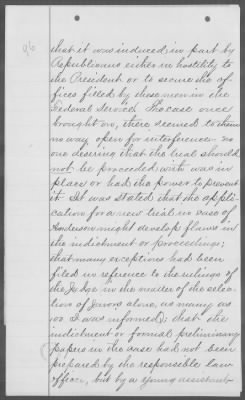 96
that it was induced, in part by
Republicans either in hostility to
the President or to secure the of-
fices filled by these men in the
Federal Service. The case once
brought on, there seemed to them
no way open for interference. no
one desiring that the trial should
not be proceeded with was in
place or had the power to prevent
it. It was stated that the appli-
cation for a new trial in case of
Anderson might develop flaws in
the indictment or proceedings;
that many exceptions had been
filed in reference to the rulings of
the Judge in the matter of the selec-
tion of jurors alone, as many as
100. I was informed, that the
indictment or formal preliminary
papers in the case had not been
prepared by the responsible law
officer, but by a young assistant